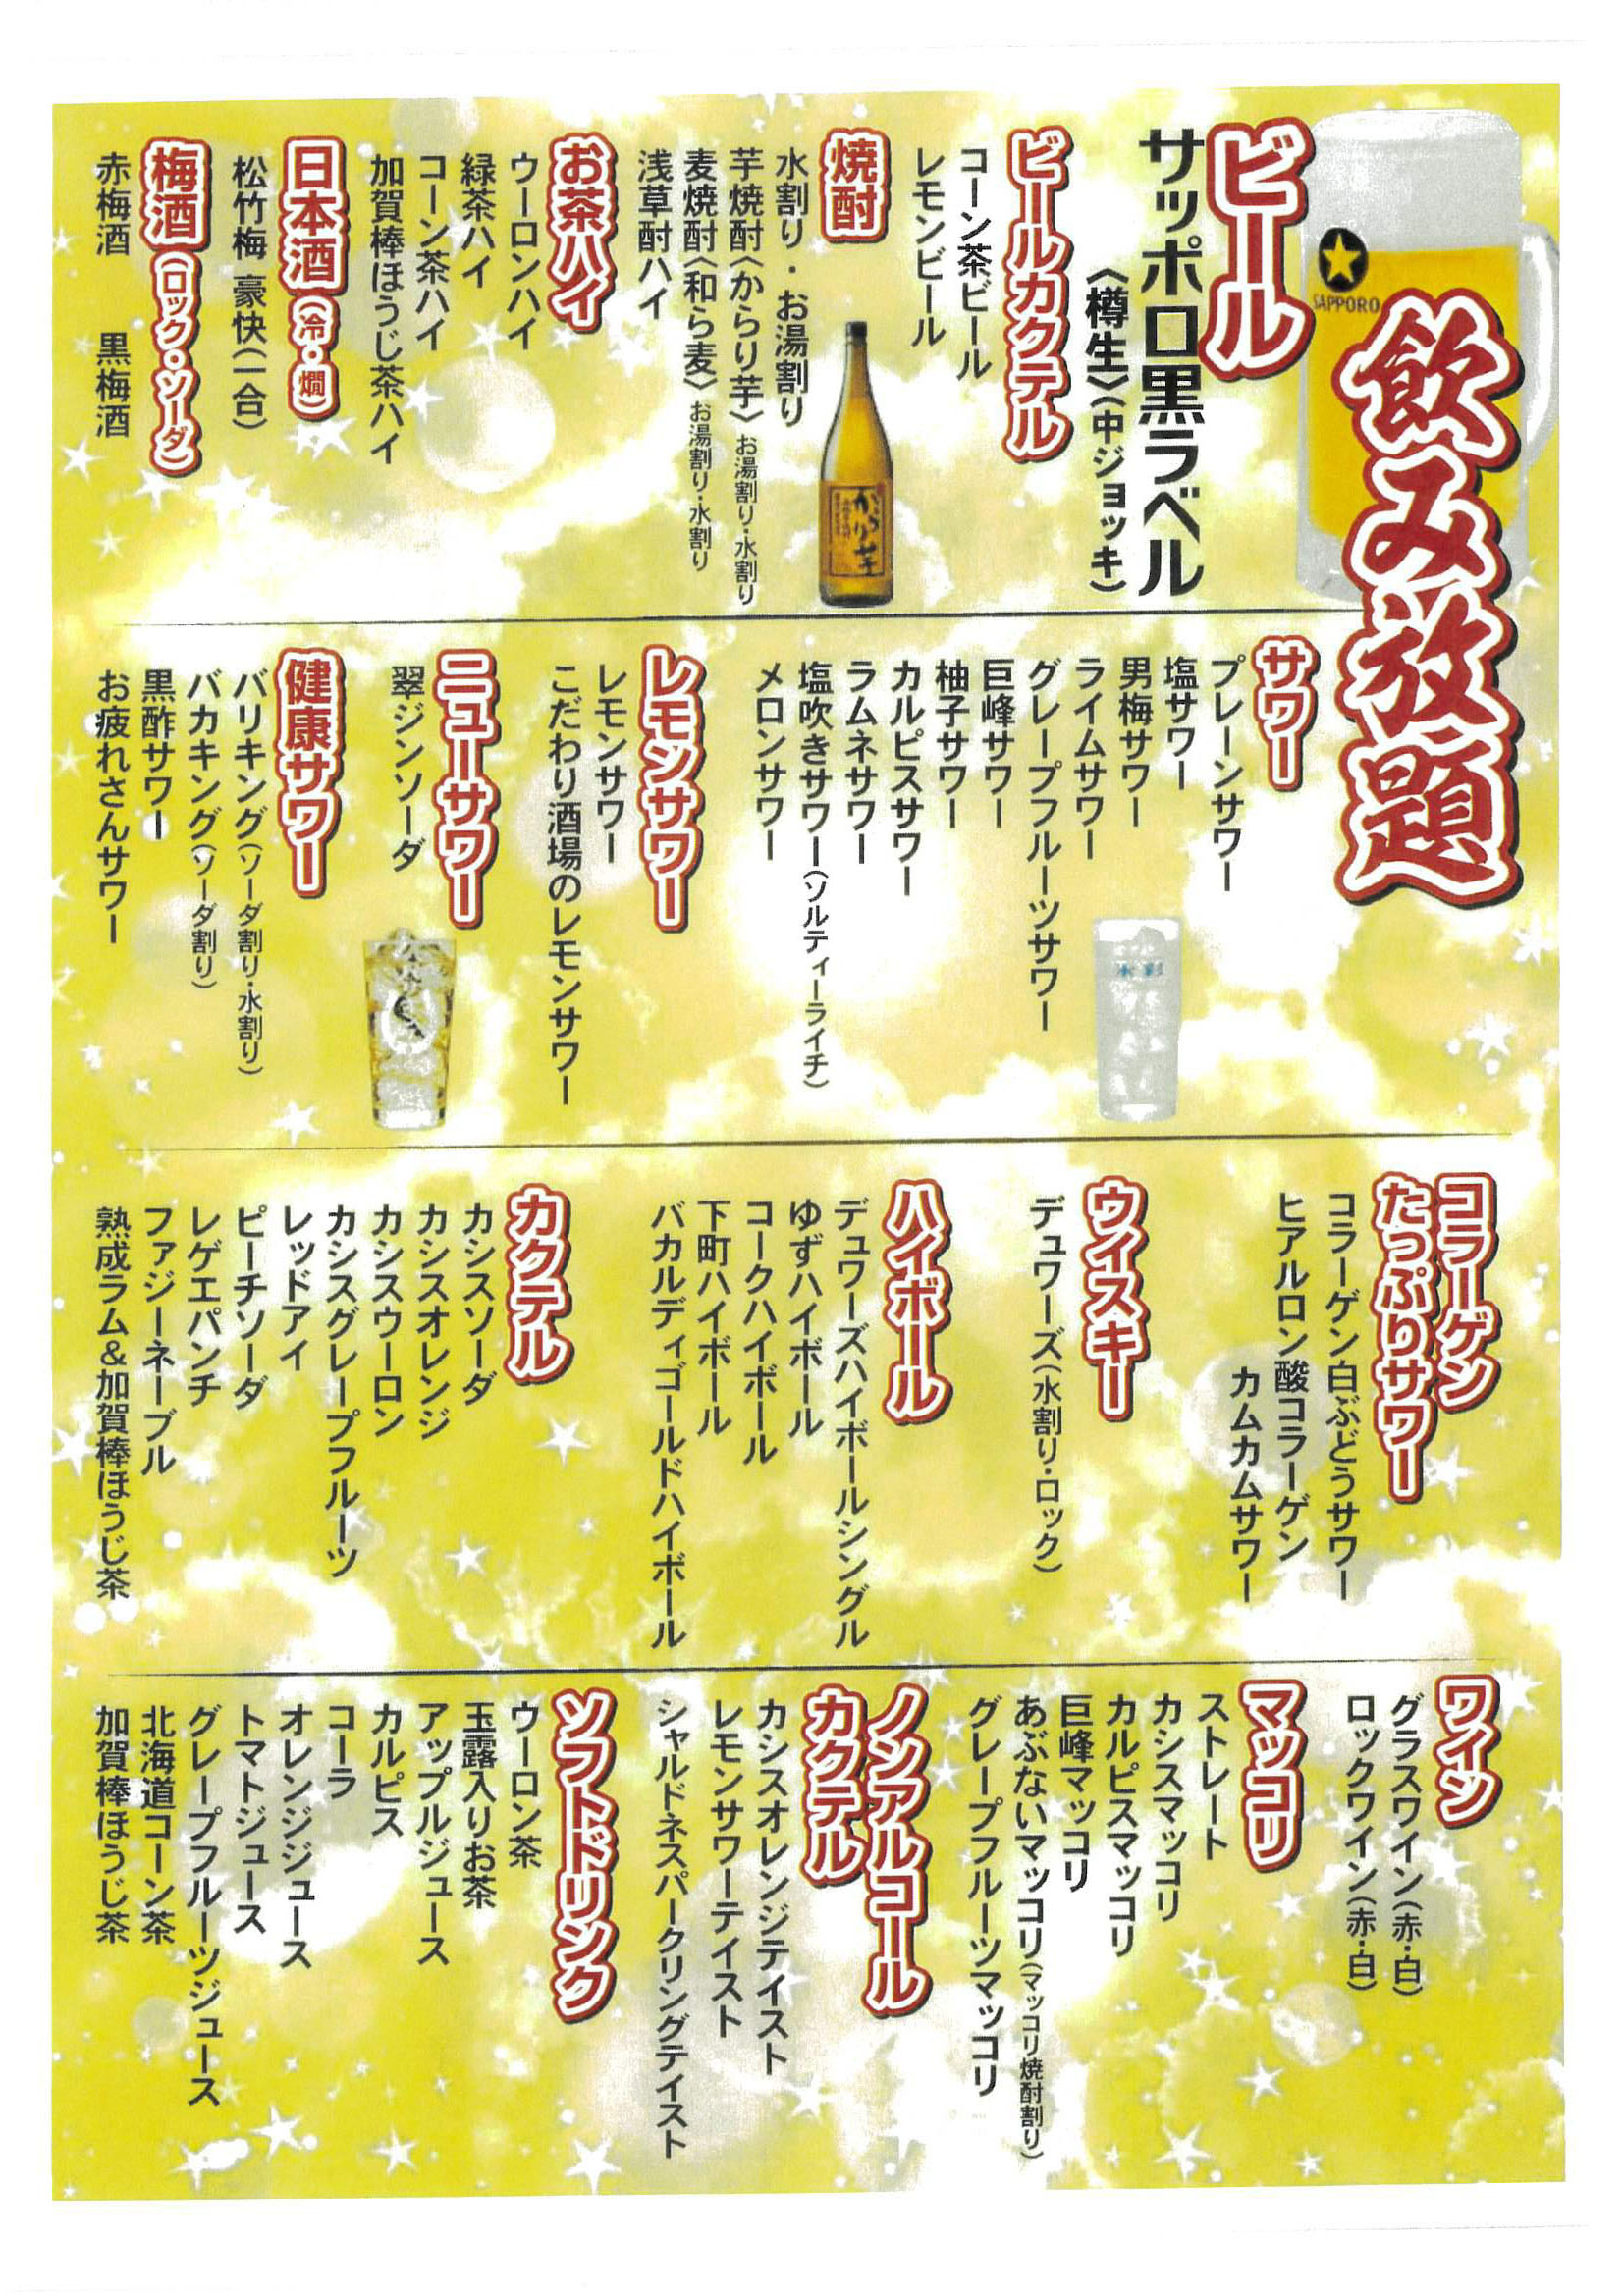 飲み放題
SAPPORO
ビール
サッポロ黒ラベル
〈樽生〉(中ジョッキ)
ビールカクテル
コーン茶ビール
レモンビール
焼酎
水割り・お湯割り
芋焼酎〈からり芋〉お湯割り・水割り
麦焼酎〈和ら麦〉お湯割り・水割り
浅草酎ハイ
からり芋
お茶ハイ
ウーロンハイ
緑茶ハイ
コーン茶ハイ
加賀棒ほうじ茶ハイ
日本酒(冷・燗)
松竹梅 豪快(一合)
梅酒(ロック・ソーダ)
赤梅酒 黒梅酒
サワー
プレーンサワー
塩サワー
男梅サワー
ライムサワー
グレープフルーツサワー
巨峰サワー
柚子サワー
カルピスサワー
ラムネサワー
塩吹きサワー(ソルティーライチ)
メロンサワー
レモンサワー
レモンサワー
こだわり酒場のレモンサワー
ニューサワー
翠ジンソーダ
健康サワー
バリキング(ソーダ割り・水割り)
バカキング(ソーダ割り)
黒酢サワー
お疲れさんサワー
コラーゲン
たっぷりサワー
コラーゲン白ぶどうサワー
ヒアルロン酸コラーゲン
カムカムサワー
ウイスキー
デュワーズ(水割り・ロック)
ハイボール
デュワーズハイボールシングル
ゆずハイボール
コークハイボール
下町ハイボール
バカルディゴールドハイボール
カクテル
カシスソーダ
カシスオレンジ
カシスウーロン
カシスグレープフルーツ
レッドアイ
ピーチソーダ
レゲエパンチ
ファジーネーブル
熟成ラム&加賀棒ほうじ茶
ワイン
グラスワイン(赤・白)
ロックワイン(赤・白)
マッコリ
ストレート
カシスマッコリ
カルピスマッコリ
巨峰マッコリ
あぶないマッコリ(マッコリ焼酎割り)
グレープフルーツマッコリ
ノンアルコール
カクテル
カシスオレンジテイスト
レモンサワーテイスト
シャルドネスパークリングテイスト
ソフトドリンク
ウーロン茶
玉露入りお茶
アップルジュース
カルピス
コーラ
オレンジジュース
トマトジュース
グレープフルーツジュース
北海道コーン茶
加賀棒ほうじ茶